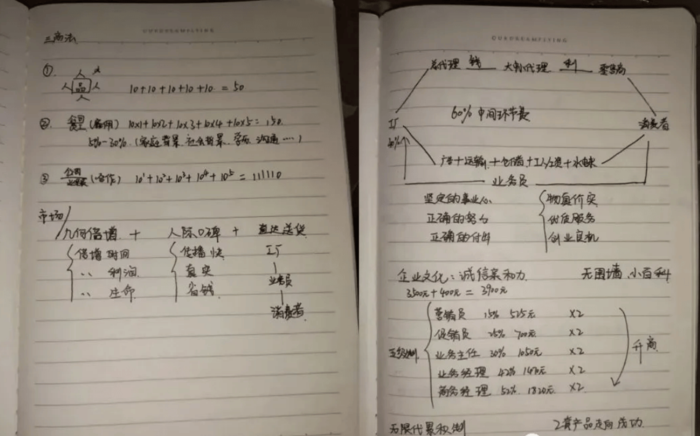 三商法
①
人 品 人 人 人
10+10+10+10+10 = 50
② 管理(聪明) 10×1+10×2+10×3+10×4+10×5=150
5%-30% (家庭背景 社会背景 学历 沟通…)
③ (合作) 10¹+10²+10³+10⁴+10⁵=111110
市场
几何倍增 + 人际口碑 + 直达送货
倍增时间 传播快 工厂
〃 利润 真实 业务员
〃 生命 省钱 消费者
总代理 大轴代理 零售商
工厂 60% 中间环节费 消费者
广告+运输+仓储+工人工资+水电
业务员
坚定的事业心 物真价实
正确的努力 优质服务
正确的 创业良机
企业文化:诚信亲和力 无围墙 小百科
3500元+400元=3900元
五级制
营销员 15% 525元 ×2
促销员 20% 700元 ×2
业务主任 30% 1050元 ×2
业务经理 42% 1470元 ×2
商务经理 52% 1820元 ×2
升商
无限代累积制 走向成功